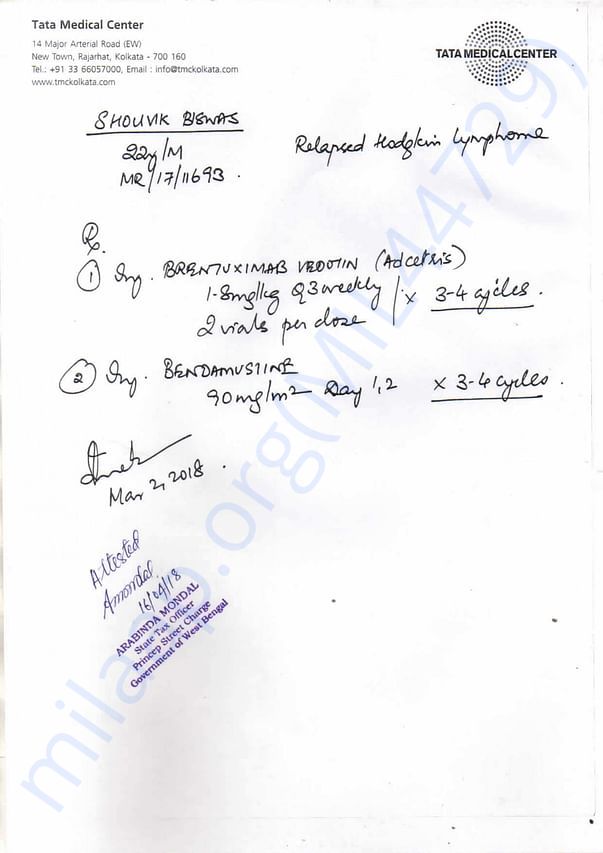 Tata Medical Center
14 Major Arterial Road (EW)
New Town, Rajarhat, Kolkata - 700 160
Tel.: +91 33 66057000, Email : info@tmckolkata.com
www.tmckolkata.com
TATA MEDICAL CENTER
SHOUVIK BISWAS
22y/M
MR/17/11693.
Relapsed Hodgkin Lymphoma
Rx
① Inj. BRENTUXIMAB VEDOTIN (Adcetris)
1.8mg/kg Q3weekly x 3-4 cycles.
2 vials per dose
② Inj. BENDAMUSTINE
90mg/m2 Day 1,2 x 3-4 cycles.
Mar 2, 2018.
Attested
Amondal
16/04/18
ARABINDA MONDAL
State Tax Officer
Princep Street Charge
Government of West Bengal
milaap.org(MIL44729)